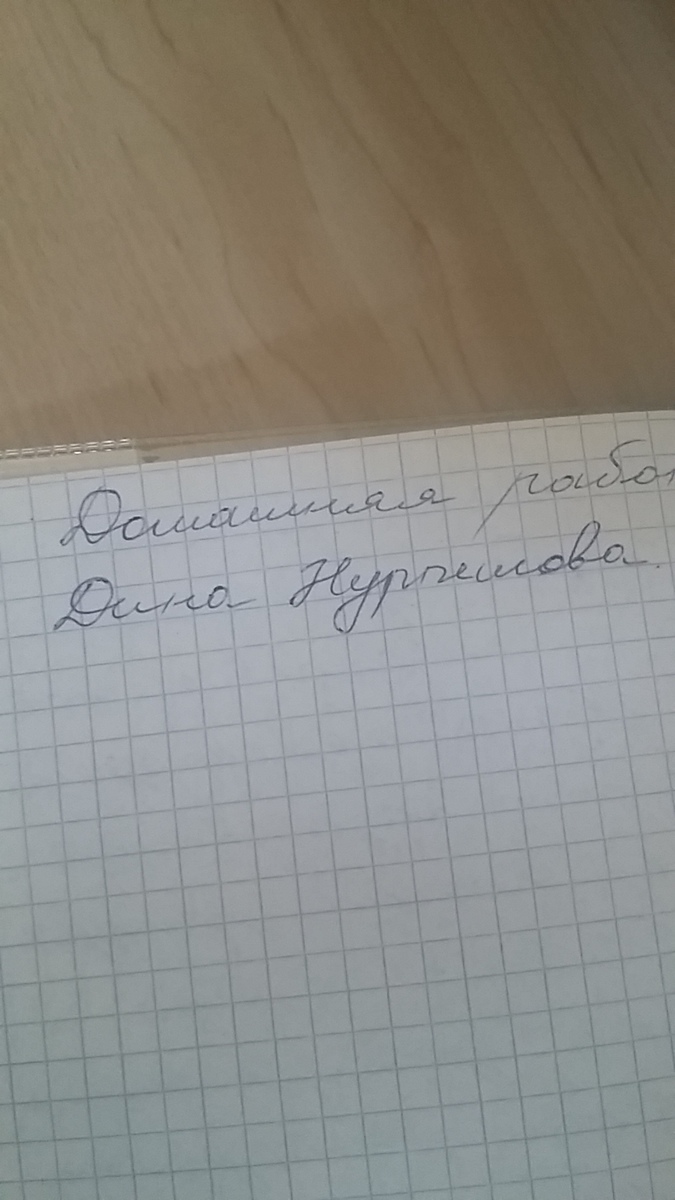 Домашняя рабо
Дина Нурпешова.